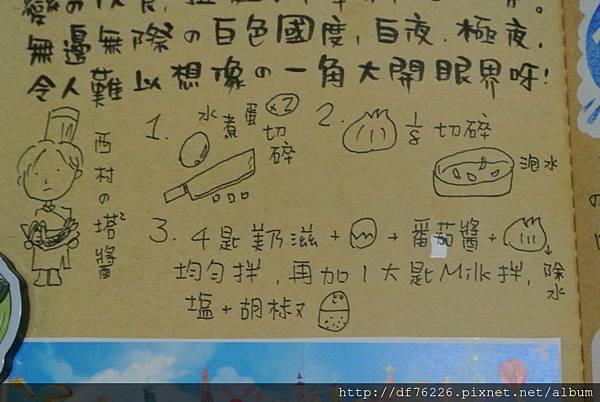 無邊無際の白色國度,白夜.極夜,
令人難以想像の一角大開眼界呀!
西村の塔塔醬
1. 水煮蛋 x2 切碎
2. 1/8 切碎
泡水
3. 4匙美乃滋 + + 番茄醬 +
均勻拌,再加1大匙Milk拌,除水
塩+胡椒
http://df76226.pixnet.net/album